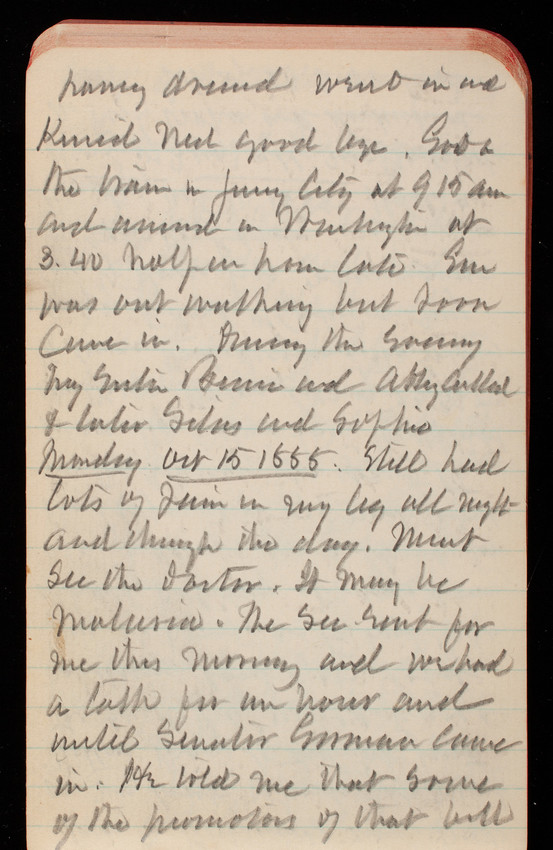 went in and
Kissed Ned good bye. Got a
the train in Jersey City at 9 15 am
and arrived in Washington at
3.40 half an hour late. Em
was out walking but soon
came in. During the Evening
my Sister Bessie and Abby called
& later Silas and Sophie
Monday Oct 15 1888. Still had
lots of Pain in my leg all night
and through the day. Must
see the Doctor. It may be
Malaria. The Sec sent for
me this morning and we had
a talk for an hour and
until Senator Gorman came
in. He told me that some
of the promotors of that bill